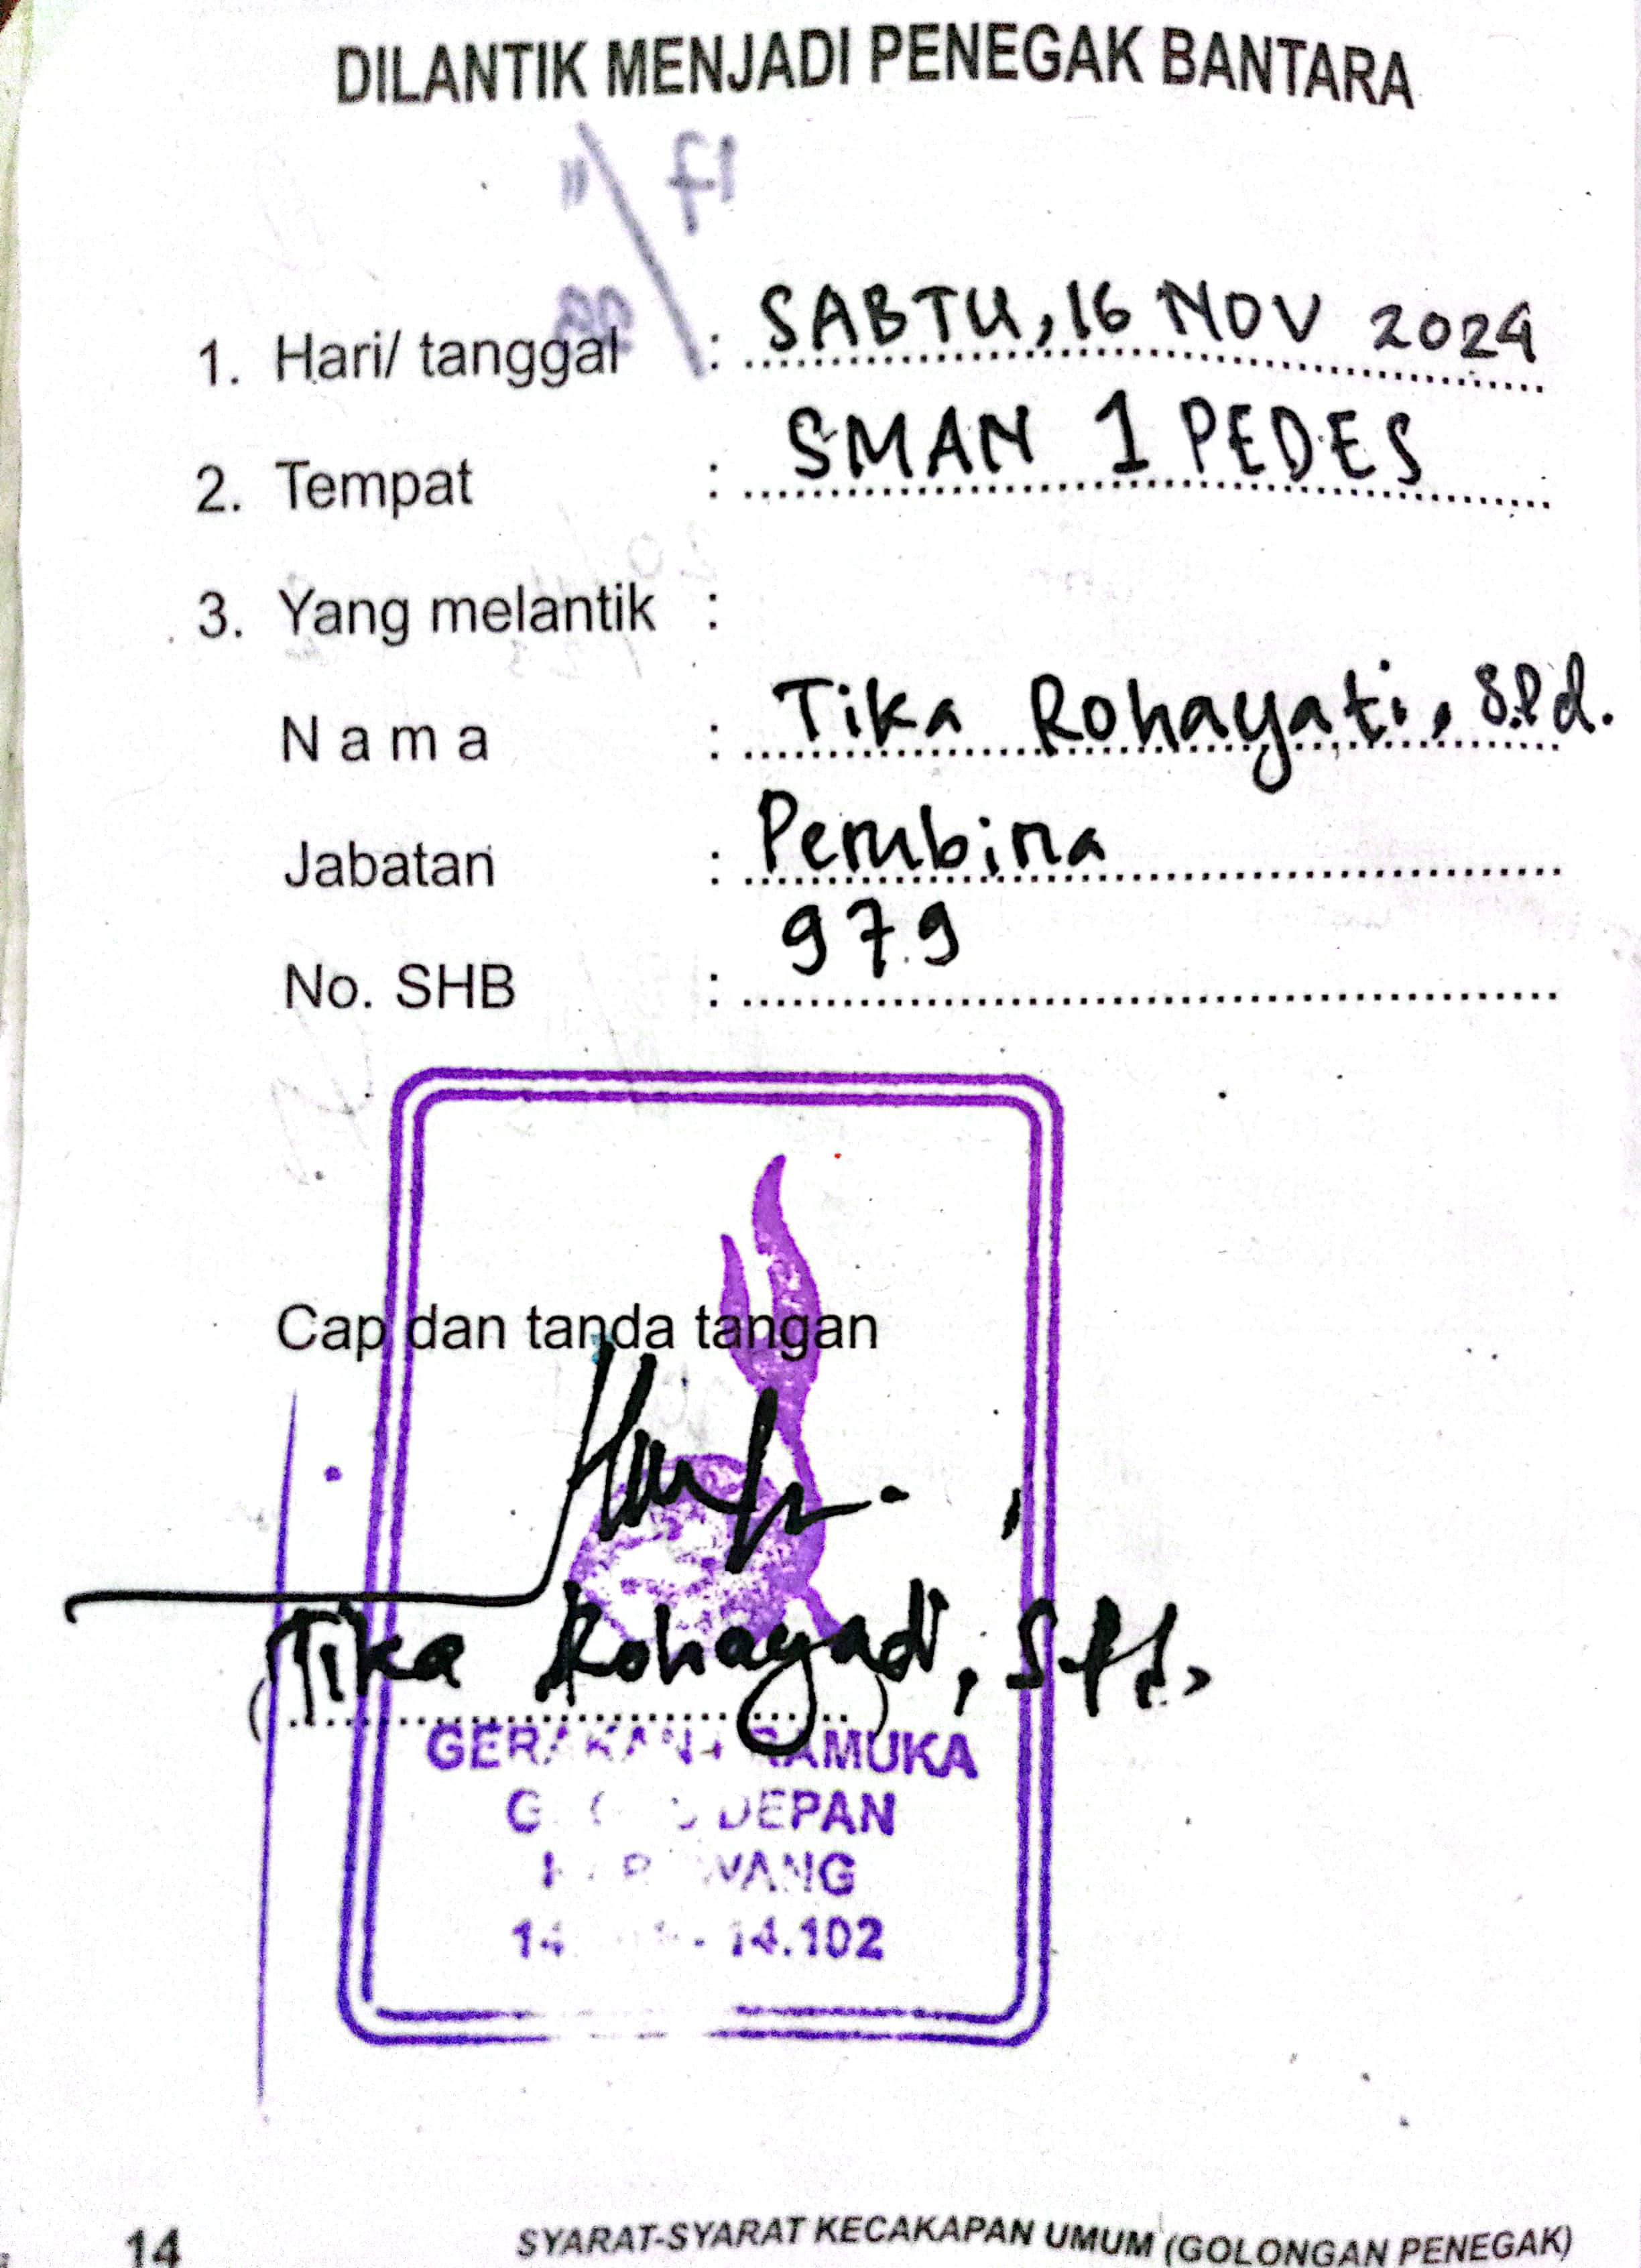 DILANTIK MENJADI PENEGAK BANTARA
1. Hari/ tanggal : SABTU, 16 NOV 2024
2. Tempat : SMAN 1 PEDES
3. Yang melantik :
N a m a : Tika Rohayati, S.Pd.
Jabatan : Pembina
No. SHB : 979
Cap dan tanda tangan
(Tika Rohayadi, S.Pd.)
GERAKAN PRAMUKA
DEPAN
14.102
14 SYARAT-SYARAT KECAKAPAN UMUM (GOLONGAN PENEGAK)